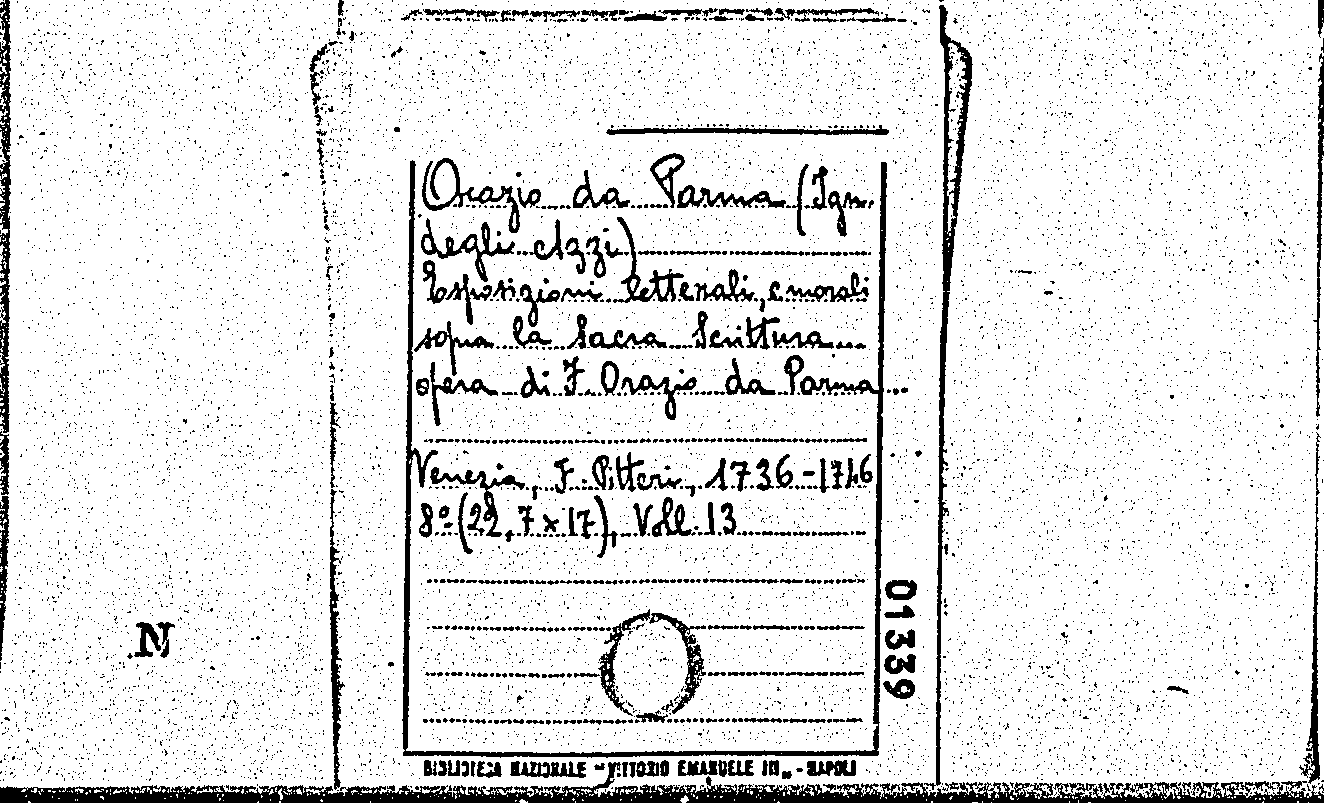 Orazio da Parma (Ign.
degli Azzi)
Esposizioni letterali, e morali
sopra la Sacra Scrittura...
opera di F. Orazio da Parma...
Venezia, F. Pitteri, 1736-1746
8º (22,7 x 17), Voll. 13
01339
N
BIBLIOTECA NAZIONALE "VITTORIO EMANUELE III" - NAPOLI